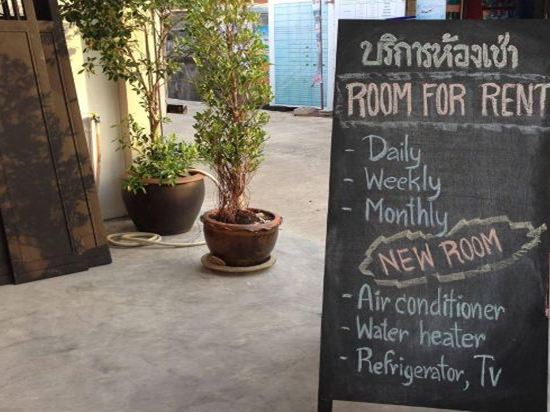 บริการห้องเช่า
ROOM FOR RENT
- Daily
- Weekly
- Monthly
NEW ROOM
- Air conditioner
- Water heater
- Refrigerator, Tv